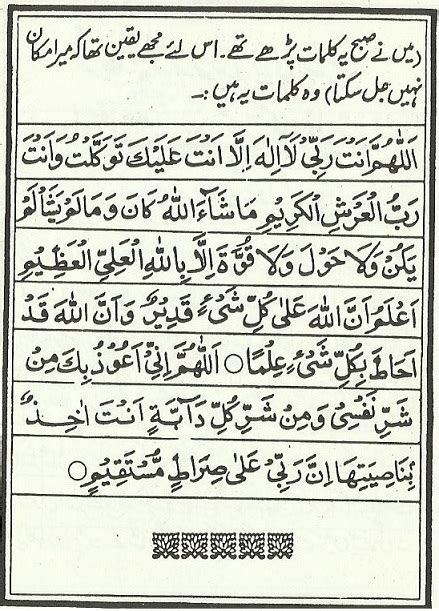 (میں نے صبح یہ کلمات پڑھے تھے۔ اس لئے مجھے یقین تھا کہ میرا مکان
نہیں جل سکتا) وہ کلمات یہ ہیں :۔
اَللّٰهُمَّ اَنْتَ رَبِّیْ لَآ اِلٰهَ اِلَّا اَنْتَ عَلَیْكَ تَوَكَّلْتُ وَاَنْتَ
رَبُّ الْعَرْشِ الْكَرِیْمِ مَاشَآءَ اللّٰهُ كَانَ وَمَا لَمْ یَشَأْ لَمْ
یَكُنْ وَلَا حَوْلَ وَلَا قُوَّةَ اِلَّا بِاللّٰهِ الْعَلِیِّ الْعَظِیْمِ
اَعْلَمُ اَنَّ اللّٰهَ عَلٰی كُلِّ شَیْءٍ قَدِیْرٌ وَّاَنَّ اللّٰهَ قَدْ
اَحَاطَ بِكُلِّ شَیْءٍ عِلْمًا○ اَللّٰهُمَّ اِنِّیْ اَعُوْذُ بِكَ مِنْ
شَرِّ نَفْسِیْ وَمِنْ شَرِّ كُلِّ دَآبَّةٍ اَنْتَ اٰخِذٌۢ
بِنَاصِیَتِهَا اِنَّ رَبِّیْ عَلٰی صِرَاطٍ مُّسْتَقِیْمٍ○